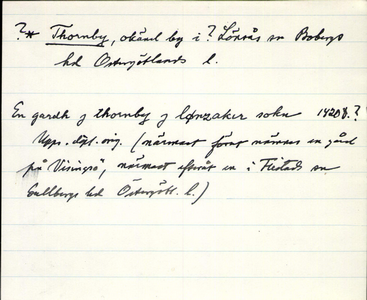 ?* Thornby, okänd by i ? Lönsås sn Bobergs
hd Östergötlands l.
En gardh j thornby j lønzaker sokn 1420 ?
Upps. dipl. orig. (närmast förut nämnes en gård
på Visingsö, närmast efteråt en i Flistads sn
Gullbergs hd Östergötl. l.)